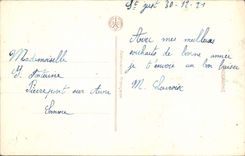 St Just 30-12-21
Avec mes meilleurs
souhaits de bonne année
je t'envoie un bon baiser
M.
Mademoiselle
Y. Fontaine
Pierrepont sur Avre
Somme